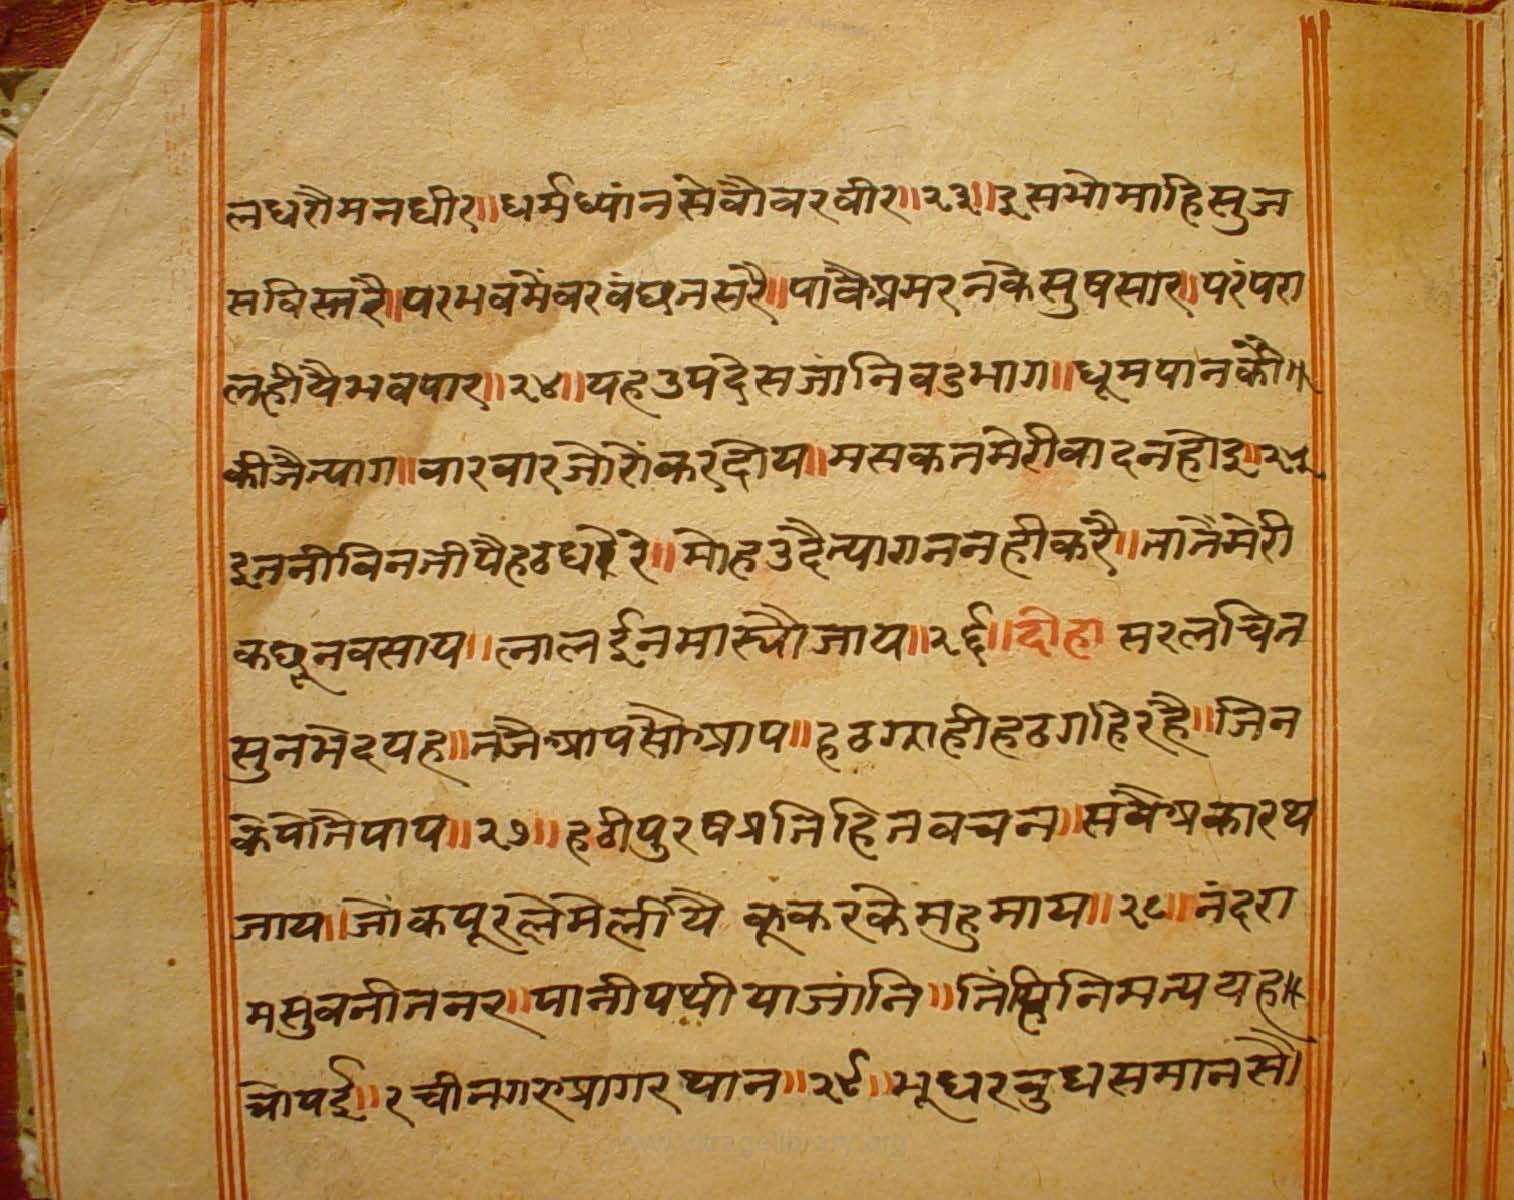 लधरौमनधीर॥धर्मध्यांनसेवौवरवीर॥२३॥इसभोमाहिसुज
सविस्तरै॥परभवमैंवरवंछतसरै॥पावैअमरनकेसुषसार॥परंपरा
लहीयैभवपार॥२४॥यहउपदेसजांनिवडभाग॥धूमपानकौ॥
कीजैत्याग॥वारवारजोरौंकरदोय॥मसकतमेरीवादनहोइ॥२५
इतनीविनतीपैहठधरे॥मोहउदैत्यागननहीकरै॥तातैंमेरी
कछूनवसाय॥लालईनमास्यौजाय॥२६॥दोहा सरलचित
सुनभेदयह॥तजैआपसौआप॥हठग्राहीहठगहिरहै॥जिन
केपोतैपाप॥२७॥हठीपुरषप्रतिहितवचन॥सवैअकारथ
जाय॥जौंकपूरलेमेलीयै कूकरकेमुहुमाय॥२८॥नंदरा
मसुवनीतनर॥पानीपथीयाजांनि॥तिंहिनिमत्ययह॥
चौपई॥रचीनगरुआगरथान॥२९॥भूधरवुधसमानसौं
www.jainelibrary.org